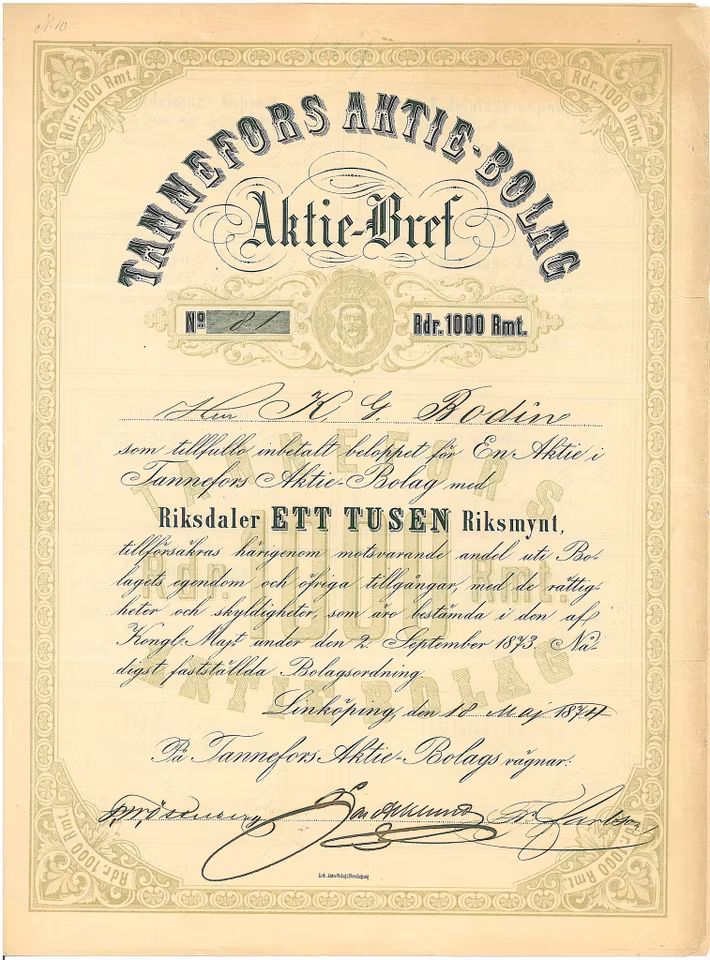 Rdr. 1000 Rmt.
Rdr. 1000 Rmt.
TANNEFORS AKTIE-BOLAG
Aktie-Bref
No 81
Rdr. 1000 Rmt.
Herr K. G. Bodin
som tillfullo inbetalt beloppet för En Aktie i
Tannefors Aktie-Bolag med
Riksdaler ETT TUSEN Riksmynt,
tillförsäkras härigenom motsvarande andel uti Bo-
lagets egendom och öfriga tillgångar, med de rättig-
heter och skyldigheter, som äro bestämda i den af
Kongl. Majt under den 2. September 1873. Nå-
digst fastställda Bolagsordning.
Linköping, den 18 Maj 1874
På Tannefors Aktie-Bolags vägnar:
Rdr. 1000 Rmt.
Rdr. 1000 Rmt.
TANNEFORS
Rdr. 1000 Rmt.
AKTIE BOLAG